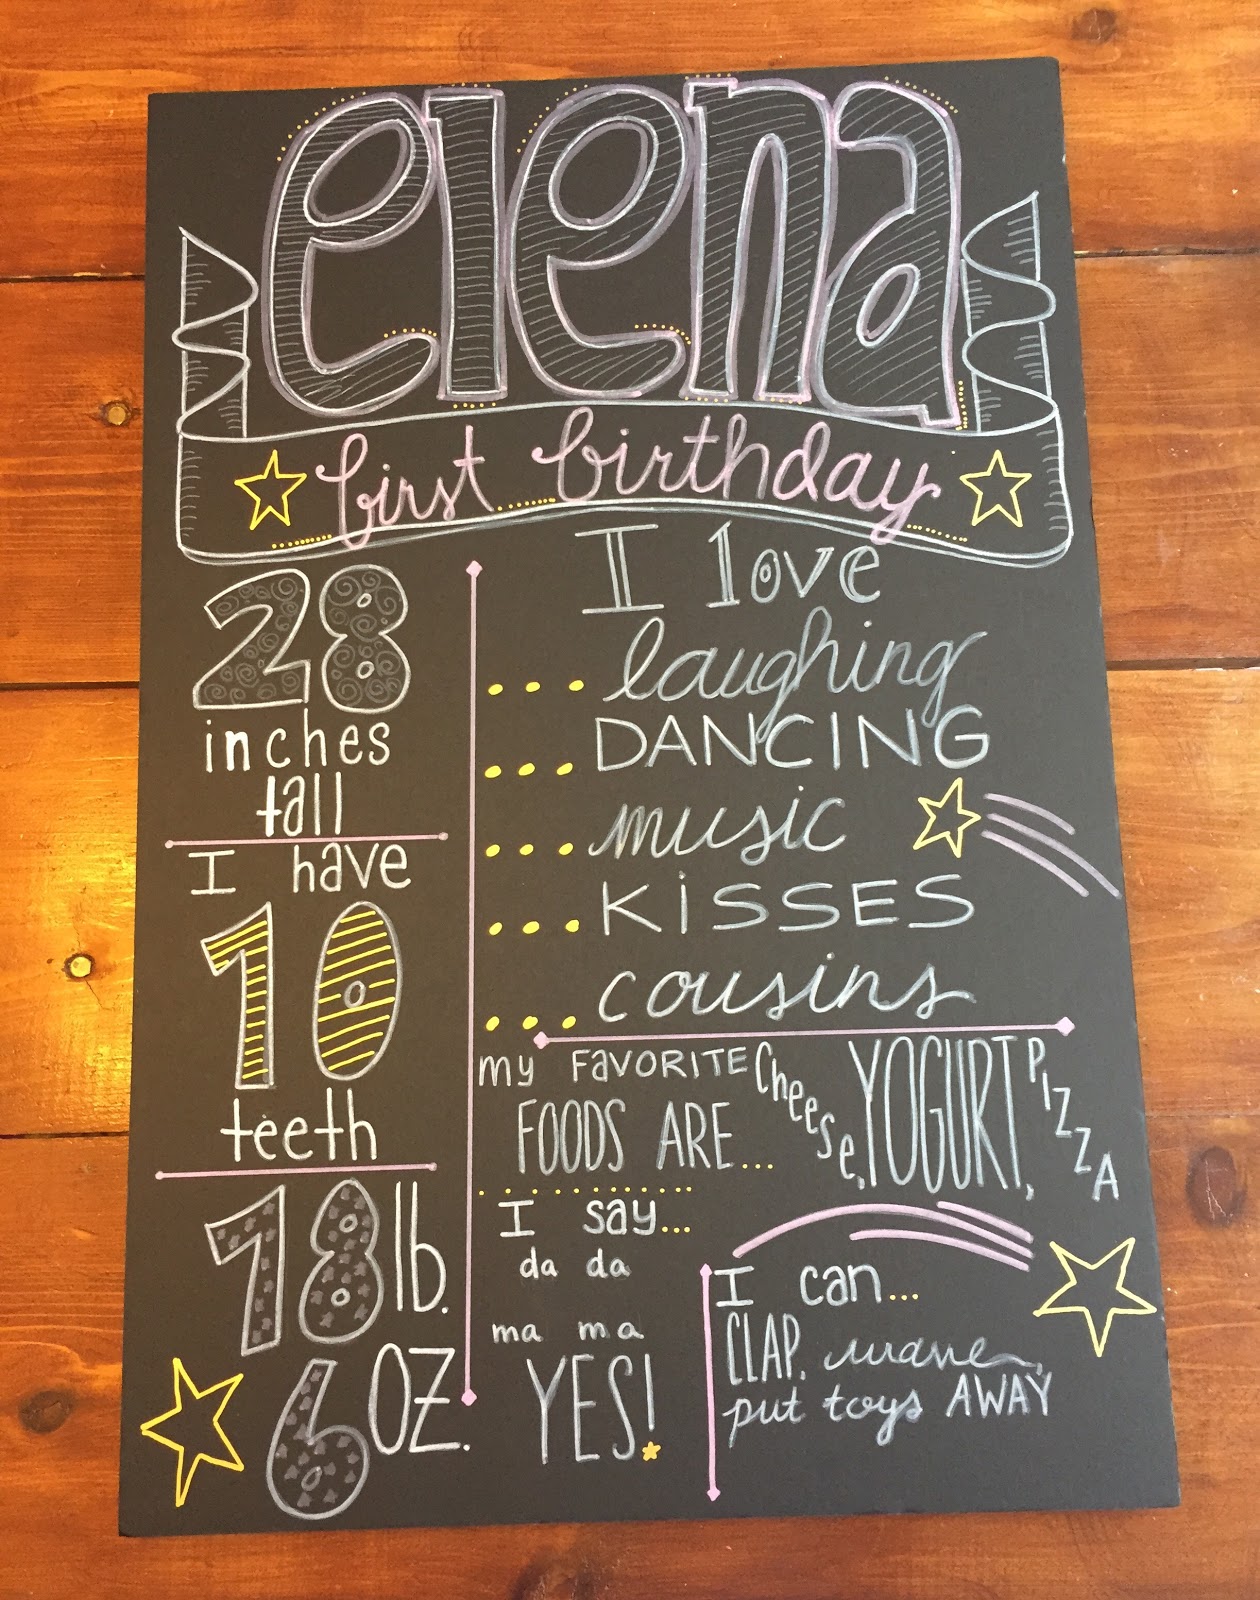 elena
first birthday
28
inches
tall
I have
10
teeth
18 lb.
6 OZ.
I love
...laughing
...DANCING
...music
...KiSSES
...cousins
my FAVORITE
FOODS ARE...
Cheese,
YOGURT,
PIZZA
I say...
da da
ma ma
YES!
I can...
CLAP, wave,
put toys AWAY